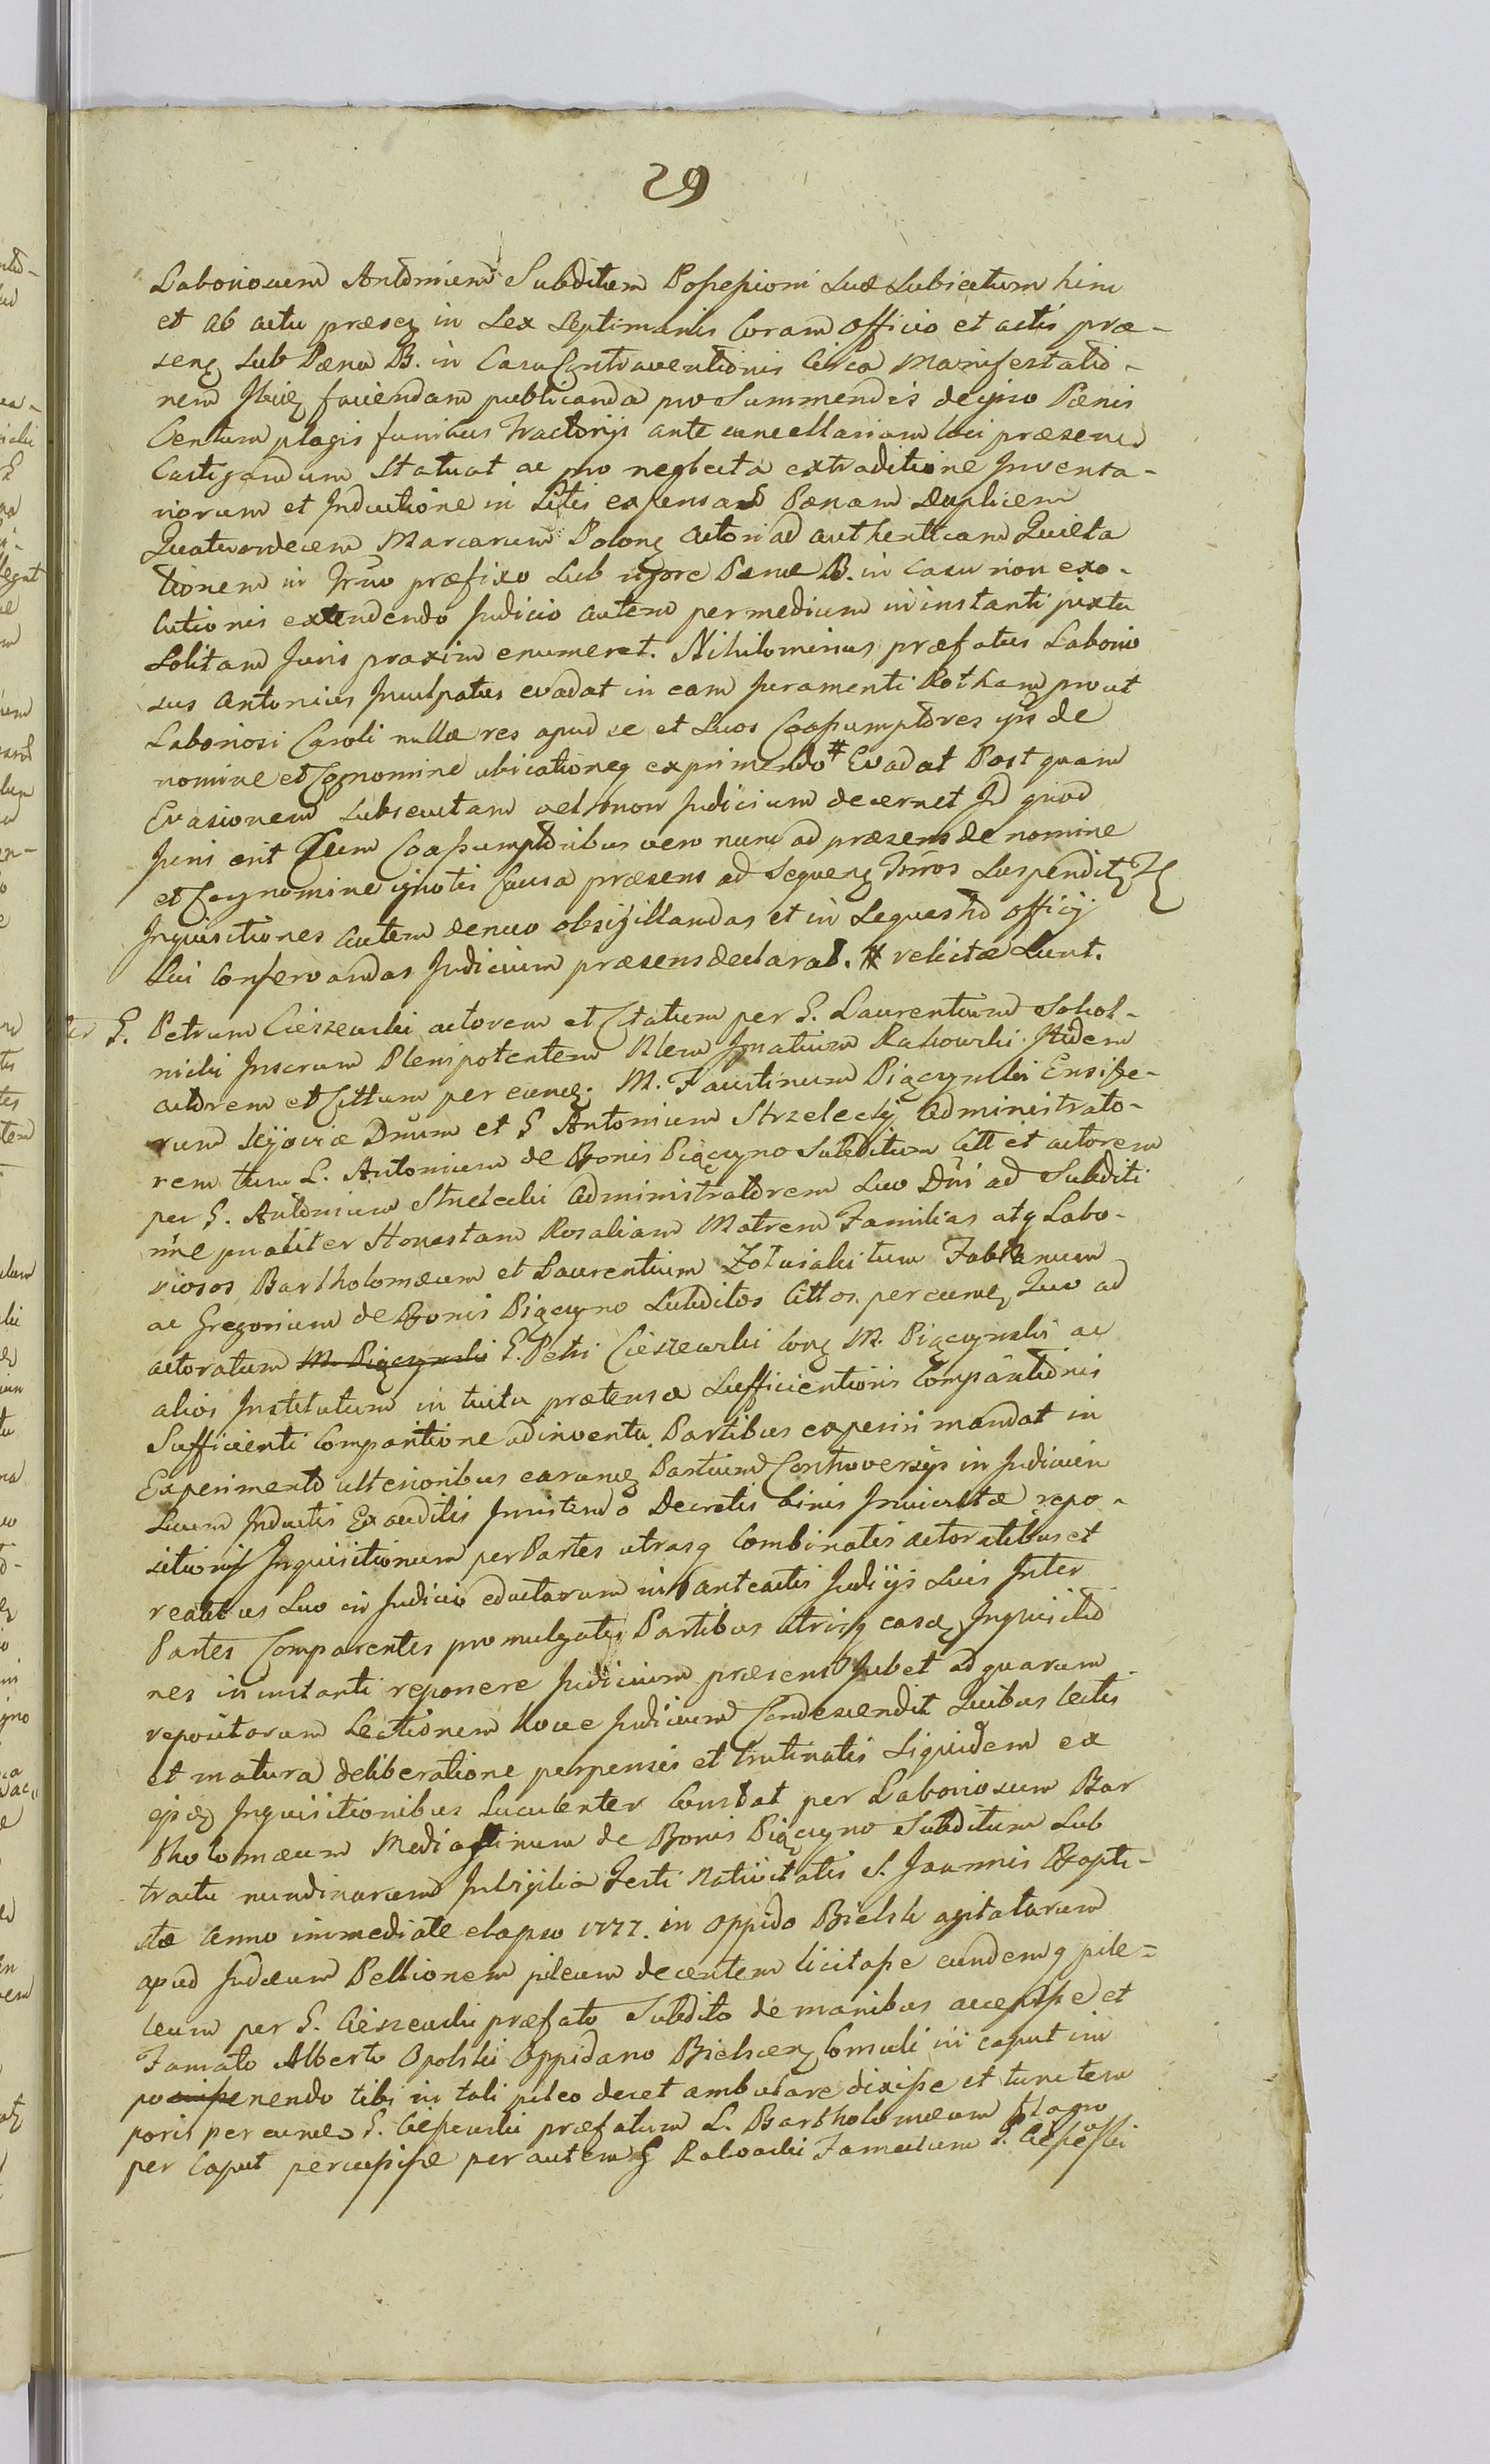 29
Laboriosum Antonium Subditum Possessioni suæ subiectum hinc
et ab actu præsen in sex septimanis Coram Officio et actis præ-
sen sub Pæna B. in Casu Contraventionis Circa Manifestatio-
nem Ibiq faciendam publicanda pro Summendis de ipso Pænis
Centum plagis funibus tractorijs ante cancellariam loci præsen
Castigandum statuat ac pro neglecta extraditione Inventa-
riorum et Inductione in Litis expensas Pænam duplicem
Quatuordecem Marcarum Polon Actori ad authenticam Quieta
tionem in Trno præfixo sub rigore Pænæ B. in casu non exo-
lutionis extendendo Judicio autem per medium in instanti juxta
Solitam Juris praxim enumeret. Nihilominus præfatus Laborio
sus Antonius Inculpatus evadat in eam Juramenti Rotham prout
Laboriosi Caroli nullæ res apud se et suos Coassumptores ijs de
nomine et Cognomine ubicationeq exprimendo # Evadat Post quam
Evasionem subsecutam vel non Judicium decernet Id quod
Juris erit Cum Coassumptoribus vero nunc ad præsens de nomine
et Cognomine ignotis Causa præsens ad sequen Trnos suspendit
Inquisitiones autem denuo obsigillandas et in Sequestro Officij
sui Conservandas Judicium præsens declarat. # relictæ sunt.
G. Petrum Cieszewski actorem et Citatum per G. Laurentium Sokol-
nicki Juserum Plenipotentem Nlem Ignatium Rakowski Itidem
actorem et Cittum per eund M. Faustinum Piączynski Ensife-
rum Kijoviæ Dnum et G Antonium Strzelecki Administrato-
rem tum L. Antonium de Bonis Piączyno Subditum Citt et actorem
per G. Antonium Strzelecki Administratorem suo Dni ad Subditi
nne pariter Honestam Rosaliam Matrem Familias atq Labo-
riosos Bartholomæum et Laurentium Zotwialu tum Fabianum
ac Gregorium de Bonis Piączyno Subditos Cittos per eund Quo ad
actoratum M. Piączynski G. Petri Cieszewski Con M. Piączynski ac
alios Institutum in tuitu prætensæ sufficientioris Comparitionis
Sufficienti Comparitione adinventa Partibus experiri mandat in
Experimento ulterioribus earund Partium Controversijs in Judicium
suum Inductis Exauditis Innitendo Decretis binis Intuitu repo-
sitionis Inquisitionum per Partes utrasq Combinatis actoratibus et
reatibus suo in Judicio eductarum in anteactis Judijs suis Inter
Partes Comparentes promulgatis Partibus utrisq easd Inquisitio
nes in instanti reponere Judicium præsens Jubet ad quarum
repositarum Lectionem hocce Judicium Condescendit Quibus lectis
et matura deliberatione perpensis et trutinatis siquidem ex
ejsd Inquisitionibus Luculenter Constat per Laboriosum Bar
tholomæum Mediastinum de Bonis Piączyno Subditum sub
tractu nundinarum In Vigilia Festi Nativitatis S. Joannis Bapti-
stæ Anno immediate elapso 1777. in Oppido Bielsk agitatarum
apud Judæum Pellionem pileum decentem licitasse eundemq pile-
leum per G. Cieszewski præfato Subdito de manibus accepisse et
Famato Alberto Opolski Oppidano Bielscen Consuli in caput im
ponendo tibi in tali pileo decet ambulare dixisse et tunc tem
poris per eund G. Ciessewski præfatum L. Bartholomæum flagro
per Caput percussisse per autem G Rakowski Famulum G. Ciessewski